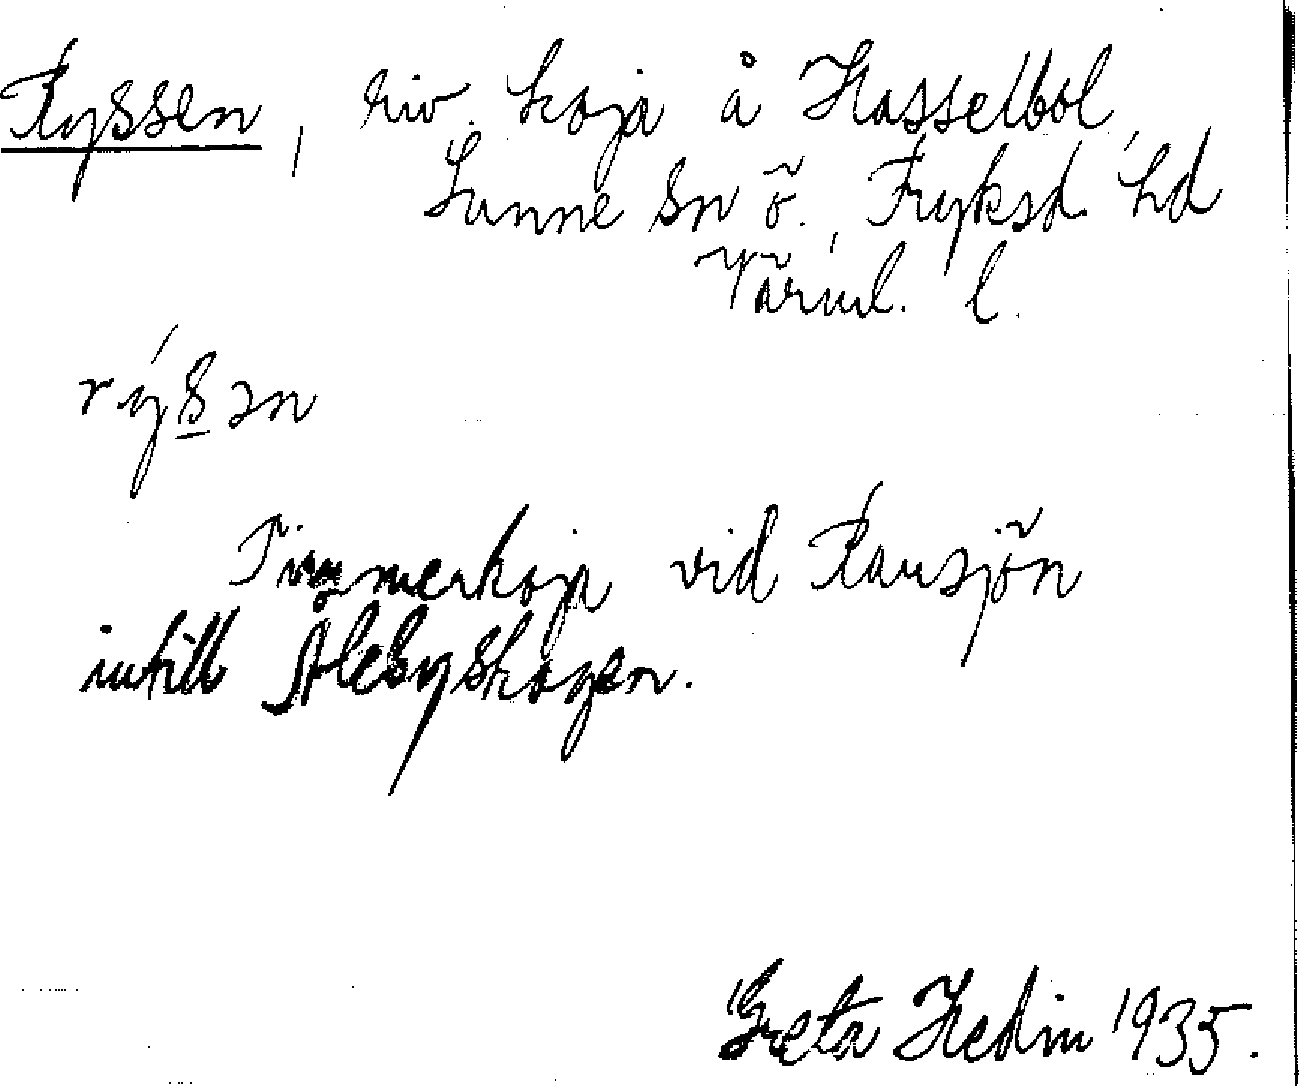 Ryssen, riv. koja å Hasselbol,
Sunne sn ö., Fryksd. hd
Värml. l.
rýsən
Timmerkoja vid Ransjön
intill Ålebyskogen.
Greta Hedin 1935.